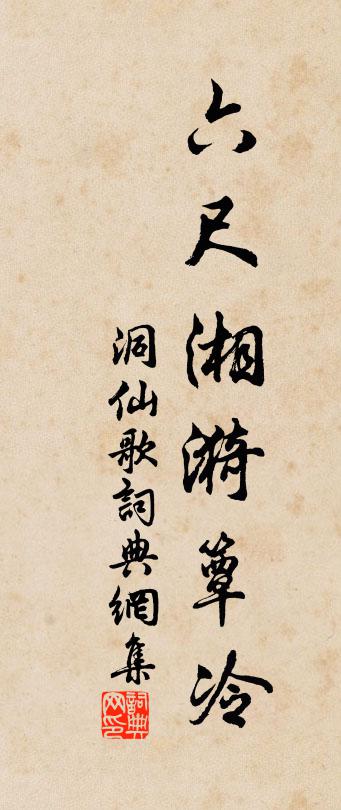 六尺湘漪簟冷
洞仙歌詞典網集
詞典網印